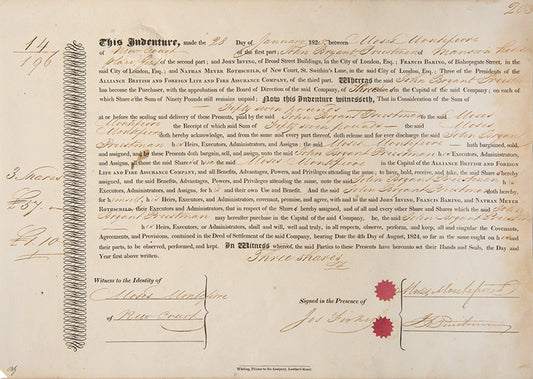 263
14
196
This Indenture, made the 28 Day of January 182 between Moses Montefiore
of New Court of the first part; John Bryant Priestman Mansion house
place Esq of the second part; and JOHN IRVING, of Broad Street Buildings, in the City of London, Esq.; FRANCIS BARING, of Bishopsgate Street, in the
said City of London, Esq.; and NATHAN MEYER ROTHSCHILD, of New Court, St. Swithin's Lane, in the said City of London, Esq.; Three of the Presidents of the
ALLIANCE BRITISH AND FOREIGN LIFE AND FIRE ASSURANCE COMPANY, of the third part. Whereas the said John Bryant Priestman
has become the Purchaser, with the approbation of the Board of Direction of the said Company, of Three in the Capital of the said Company; on each of
which Share the Sum of Ninety Pounds still remains unpaid: Now this Indenture witnesseth, That in Consideration of the Sum of
Fifty seven pounds
at or before the sealing and delivery of these Presents, paid by the said John Bryant Priestman to the said Moses
Montefiore the Receipt of which said Sum of Fifty seven pounds the said Moses
Montefiore doth hereby acknowledge, and from the same and every part thereof, doth release and for ever discharge the said John Bryant
Priestman his Heirs, Executors, Administrators, and Assigns: the said Moses Montefiore hath bargained, sold,
and assigned, and by these Presents doth bargain, sell, and assign, unto the said John Bryant Priestman his Executors, Administrators,
and Assigns, all those the said Shares of the said Moses Montefiore in the Capital of the ALLIANCE BRITISH AND FOREIGN
LIFE AND FIRE ASSURANCE COMPANY, and all Benefits, Advantages, Powers, and Privileges attending the same: to have, hold, receive, and take, the said Share so
3 Shares
assigned, and the said Benefits, Advantages, Powers, and Privileges attending the same, unto the said John Bryant Priestman his
Executors, Administrators, and Assigns, for his and their own Use and Benefit. And the said John Bryant Priestman doth hereby,
£57
for himself, his Heirs, Executors, and Administrators, covenant, promise, and agree, with and to the said JOHN IRVING, FRANCIS BARING, and NATHAN MEYER
ROTHSCHILD, their Executors and Administrators, that in respect of the Share hereby assigned, and of all and every other Share and Shares which the said John
Bryant Priestman may hereafter purchase in the Capital of the said Company he, the said John Bryant Priestman
£1.10
his Heirs, Executors, or Administrators, shall and will, well and truly, in all respects, observe, perform, and keep, all and singular the Covenants,
Agreements, and Provisions, contained in the Deed of Settlement of the said Company, bearing Date the 4th Day of August, 1824, so far as the same ought on his and
their parts, to be observed, performed, and kept. In Witness whereof, the said Parties to these Presents have hereunto set their Hands and Seals, the Day and
Year first above written.
Three shares
Witness to the Identity of
Moses Montefiore
of New Court
Signed in the Presence of
Moses Montefiore
Jos
Priestman
Whiting, Printer to the Company, Lombard Street.